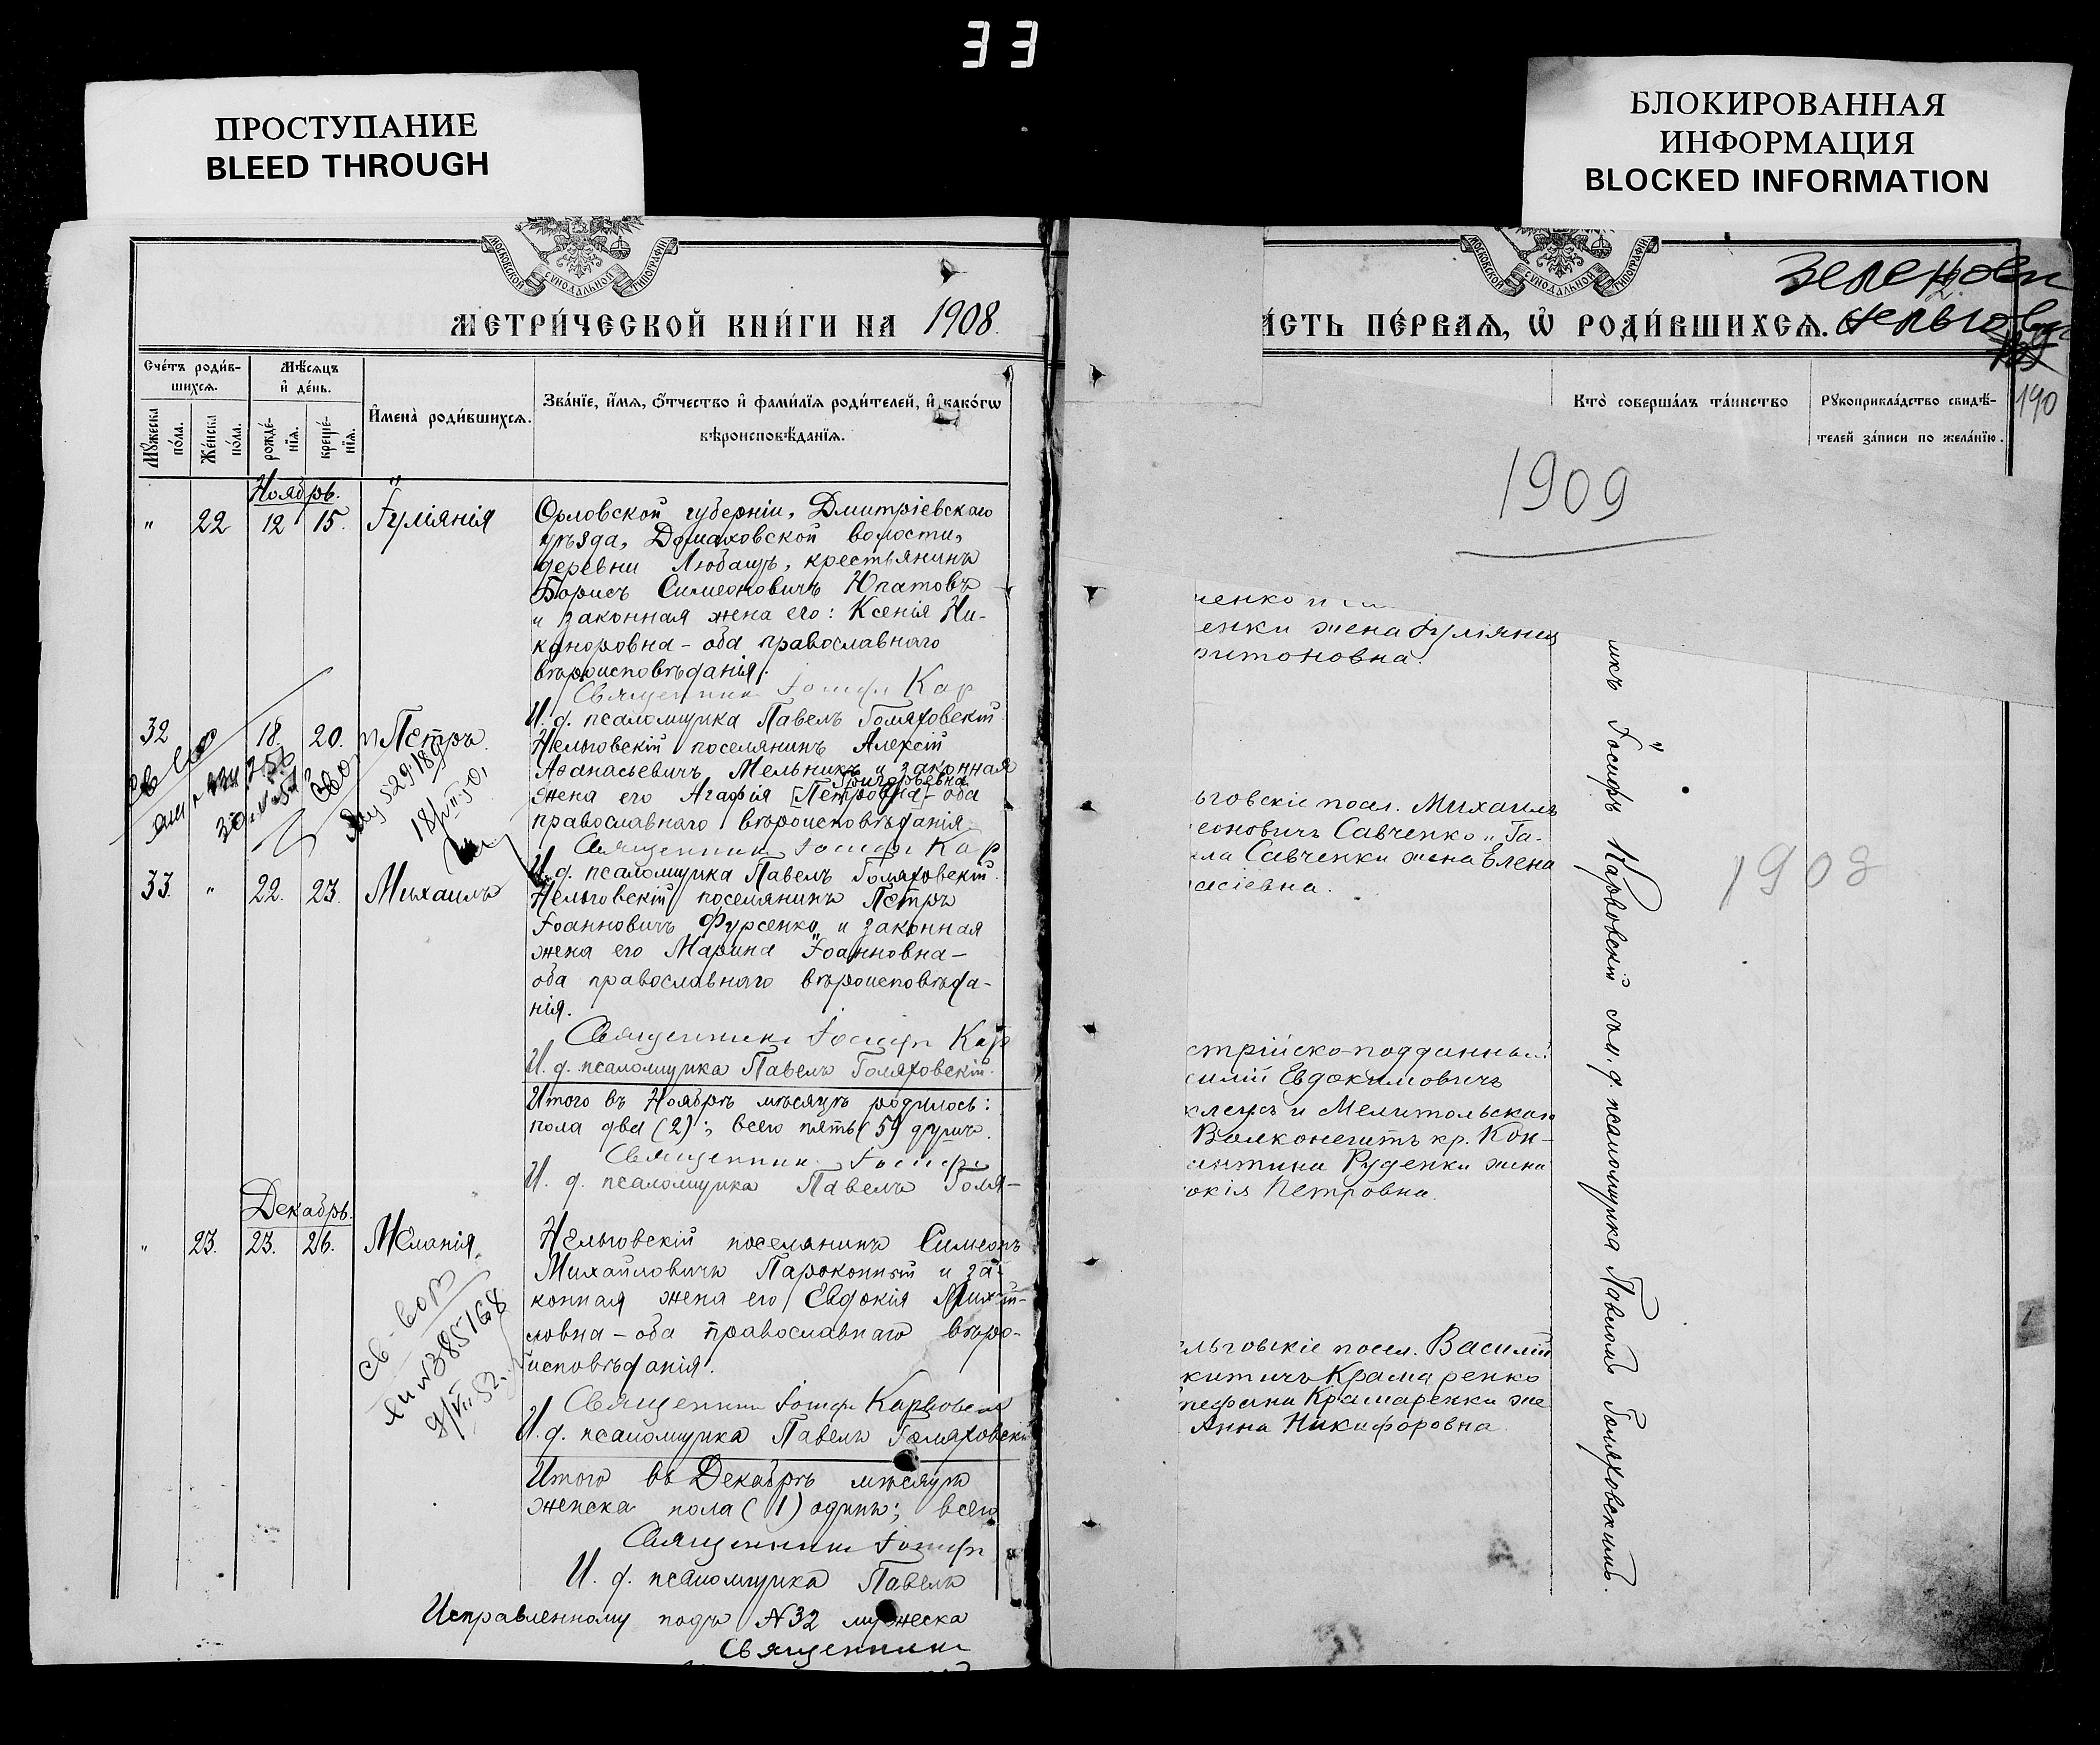 33
ПРОСТУПАНИЕ
BLEED THROUGH
БЛОКИРОВАННАЯ
ИНФОРМАЦИЯ
BLOCKED INFORMATION
МОСКОВСКОЙ СѴНОДАЛЬНОЙ ТИПОГРАФІИ
МЕТРИ́ЧЕСКОЙ КНИ́ГИ НА 1908.
Сче́тъ роди́в-
шихсѧ.
Мѣ́сѧцъ
и҆ де́нь.
Мꙋ́жеска по́ла.
Же́нска по́ла.
рожде́-нїѧ.
креще́-нїѧ.
И҆мена̀ роди́вшихсѧ.
Зва́нїе, и҆́мѧ, ѻ҆́тчество и҆ фами́лїѧ роди́телей, и҆ како́гѡ
вѣроисповѣ́данїѧ.
Ноябрь.
" 22 12 15. Іуліанія
Орловской губерніи, Дмитріевскаго
уѣзда, Домаховской волости,
деревни Любащъ, крестьянинъ
Борисъ Симеоновичъ Юпатовъ
и законная жена его: Ксенія Ни-
каноровна – оба православнаго
вѣроисповѣданія.
Священникъ Іосифъ Кар
И. д. псаломщика Павелъ Голяховскій
32 18. 20. Петръ.
Нельговскій поселянинъ Алексій
Аѳанасьевичъ Мельникъ и законная
Григорьевна
жена его Агафія [Петровна] – оба
православнаго вѣроисповѣданія.
Священникъ Іосифъ Кар
И. д. псаломщика Павелъ Голяховскій.
33. " 22. 23. Михаилъ
Нельговскій поселянинъ Петръ
Іоанновичъ Фурсенко и законная
жена его Марина Іоанновна –
оба православнаго вѣроисповѣда-
нія.
Священникъ Іосифъ Кар
И. д. псаломщика Павелъ Голяховскій.
Итого въ Ноябрѣ мѣсяцѣ родилось:
пола два (2); всего пять (5) душъ.
Священникъ Іосифъ
И. д. псаломщика Павелъ Голя-
Декабрь.
" 23. 23. 26. Меланія.
Нельговскій поселянинъ Симеонъ
Михайловичъ Пароконный и за-
конная жена его Евдокія Михай-
ловна – оба православнаго вѣро-
исповѣданія.
Священникъ Іосифъ Карповскій
И. д. псаломщика Павелъ Голяховскій
Итого въ Декабрѣ мѣсяцѣ
женска пола (1) одинъ; всего
Священникъ Іосифъ
И. д. псаломщика Павелъ
Исправленному подъ №32 мужеска
Священникъ
МОСКОВСКОЙ СѴНОДАЛЬНОЙ ТИПОГРАФІИ
И́СТЬ ПЕ́РВАѦ, Ѡ҆ РОДИ́ВШИХСѦ.
190
Кто̀ соверша́лъ та́инство
Рꙋкоприкла́дство свидѣ́-
телей за́писи по жела́нїю.
1909
енки жена Іуліанія
ритоновна.
ьговскіе посел. Михаилъ
еоновичъ Савченко и Га-
ила Савченки жена Елена
асіевна.
1908
стрійско-подданный
силій Евдокимовичъ
и Мелитопольская
кр. Кон-
антина Руденки жена
окія Петровна.
льговскіе посел. Василій
китичъ Крамаренко
тефана Крамаренки же
Анна Никифоровна
икъ Іосифъ Карповскій съ и. д. псаломщика Павломъ Голяховскимъ.